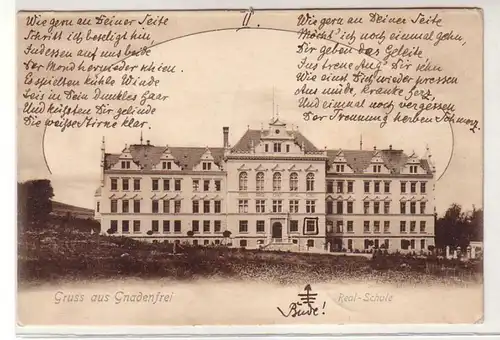 II.
Wie gern an Deiner Seite
Schritt ich, beseligt hin,
Indessen auf uns beide
Der Mond hernieder schien.
Es spielten kühle Winde
Leis in Dein dunkles Haar
Und küßten Dir gelinde
Die weiße Stirne klar.
Wie gern an Deiner Seite
Möcht' ich noch einmal gehn,
Dir geben das Geleite
Ins treue Aug' Dir sehn
Wie einst Dich wieder pressen
Ans müde, kranke Herz,
Und einmal noch vergessen
Der Trennung herben Schmerz.
Gruss aus Gnadenfrei
Real-Schule
Bude!